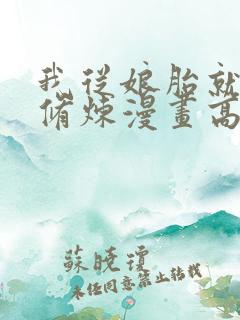 我從娘胎就
脩煉漫畫高
蘇曉瓊
未經同意禁止轉載